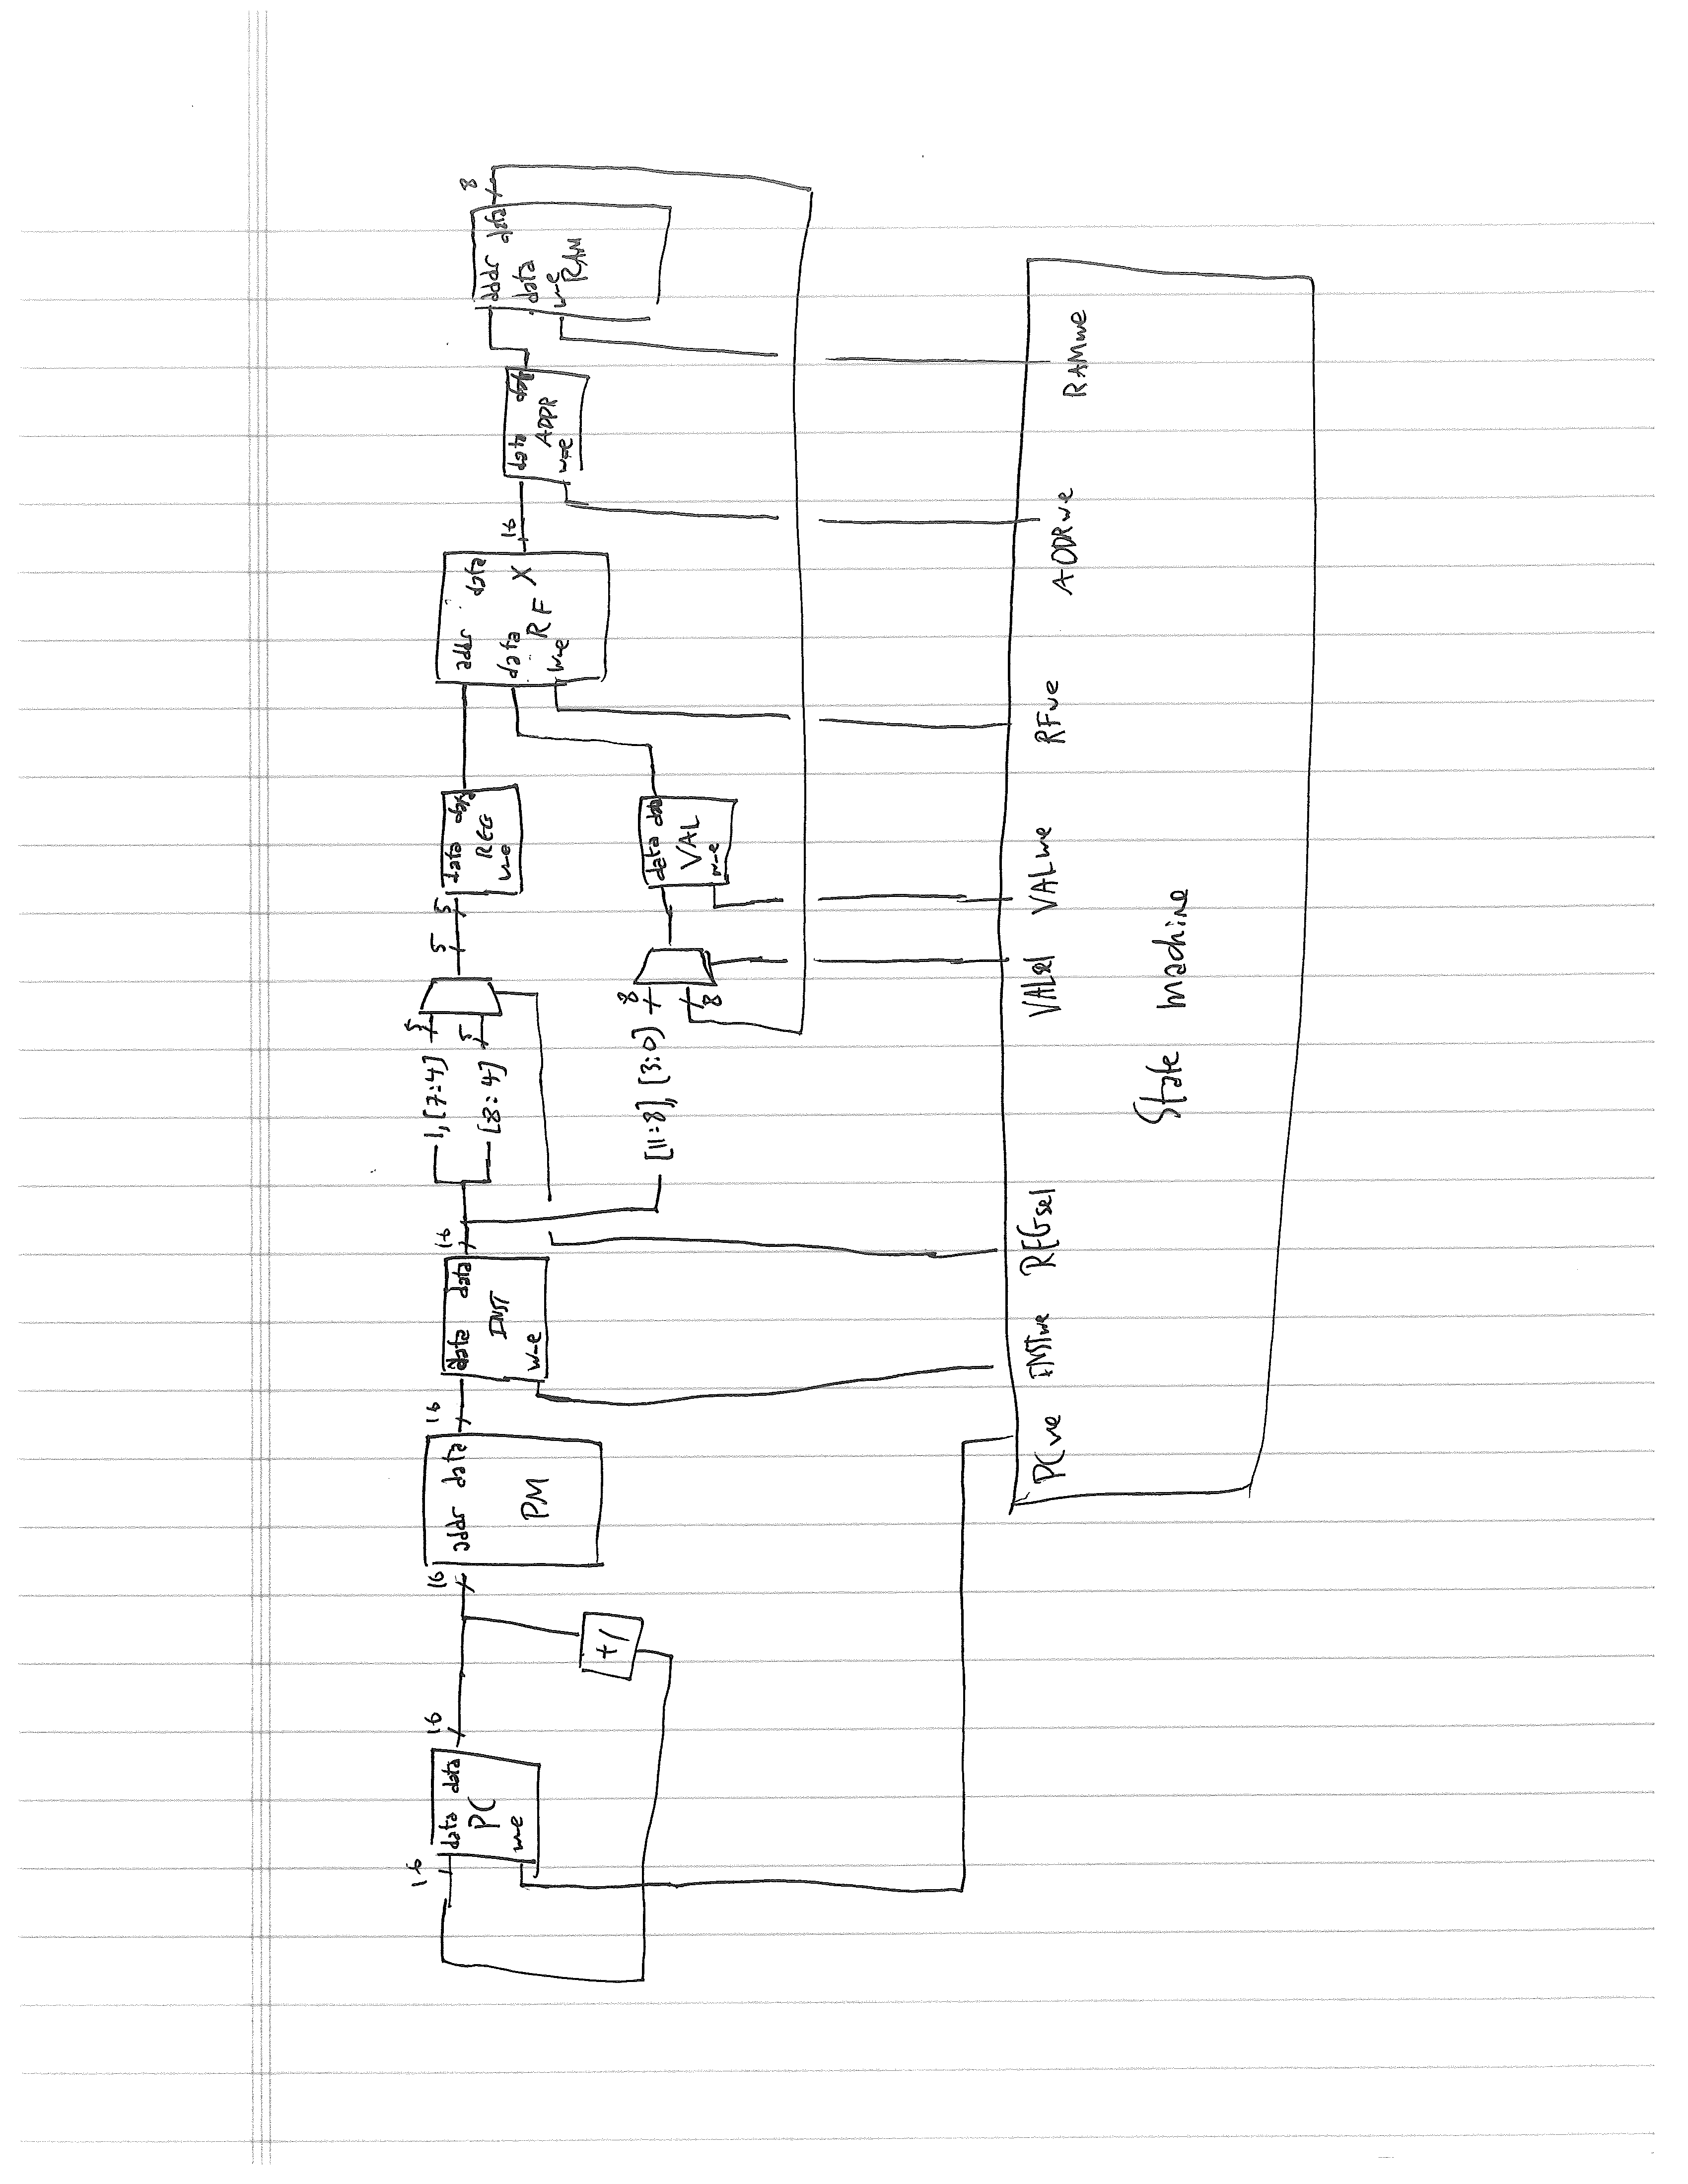 16
data data
PC
we
16
+1
16
addr data
PM
16
data data
INST
we
16
1, [7:4]
[8:4]
5
5
5
5
data data
REG
we
[11:8], [3:0]
8
8
data data
VAL
we
addr data
data
RF X
we
16
data data
ADDR
we
addr data
data
we
RAM
8
PCwe INSTwe REGsel VALsel VALwe RFwe ADDRwe RAMwe
State Machine